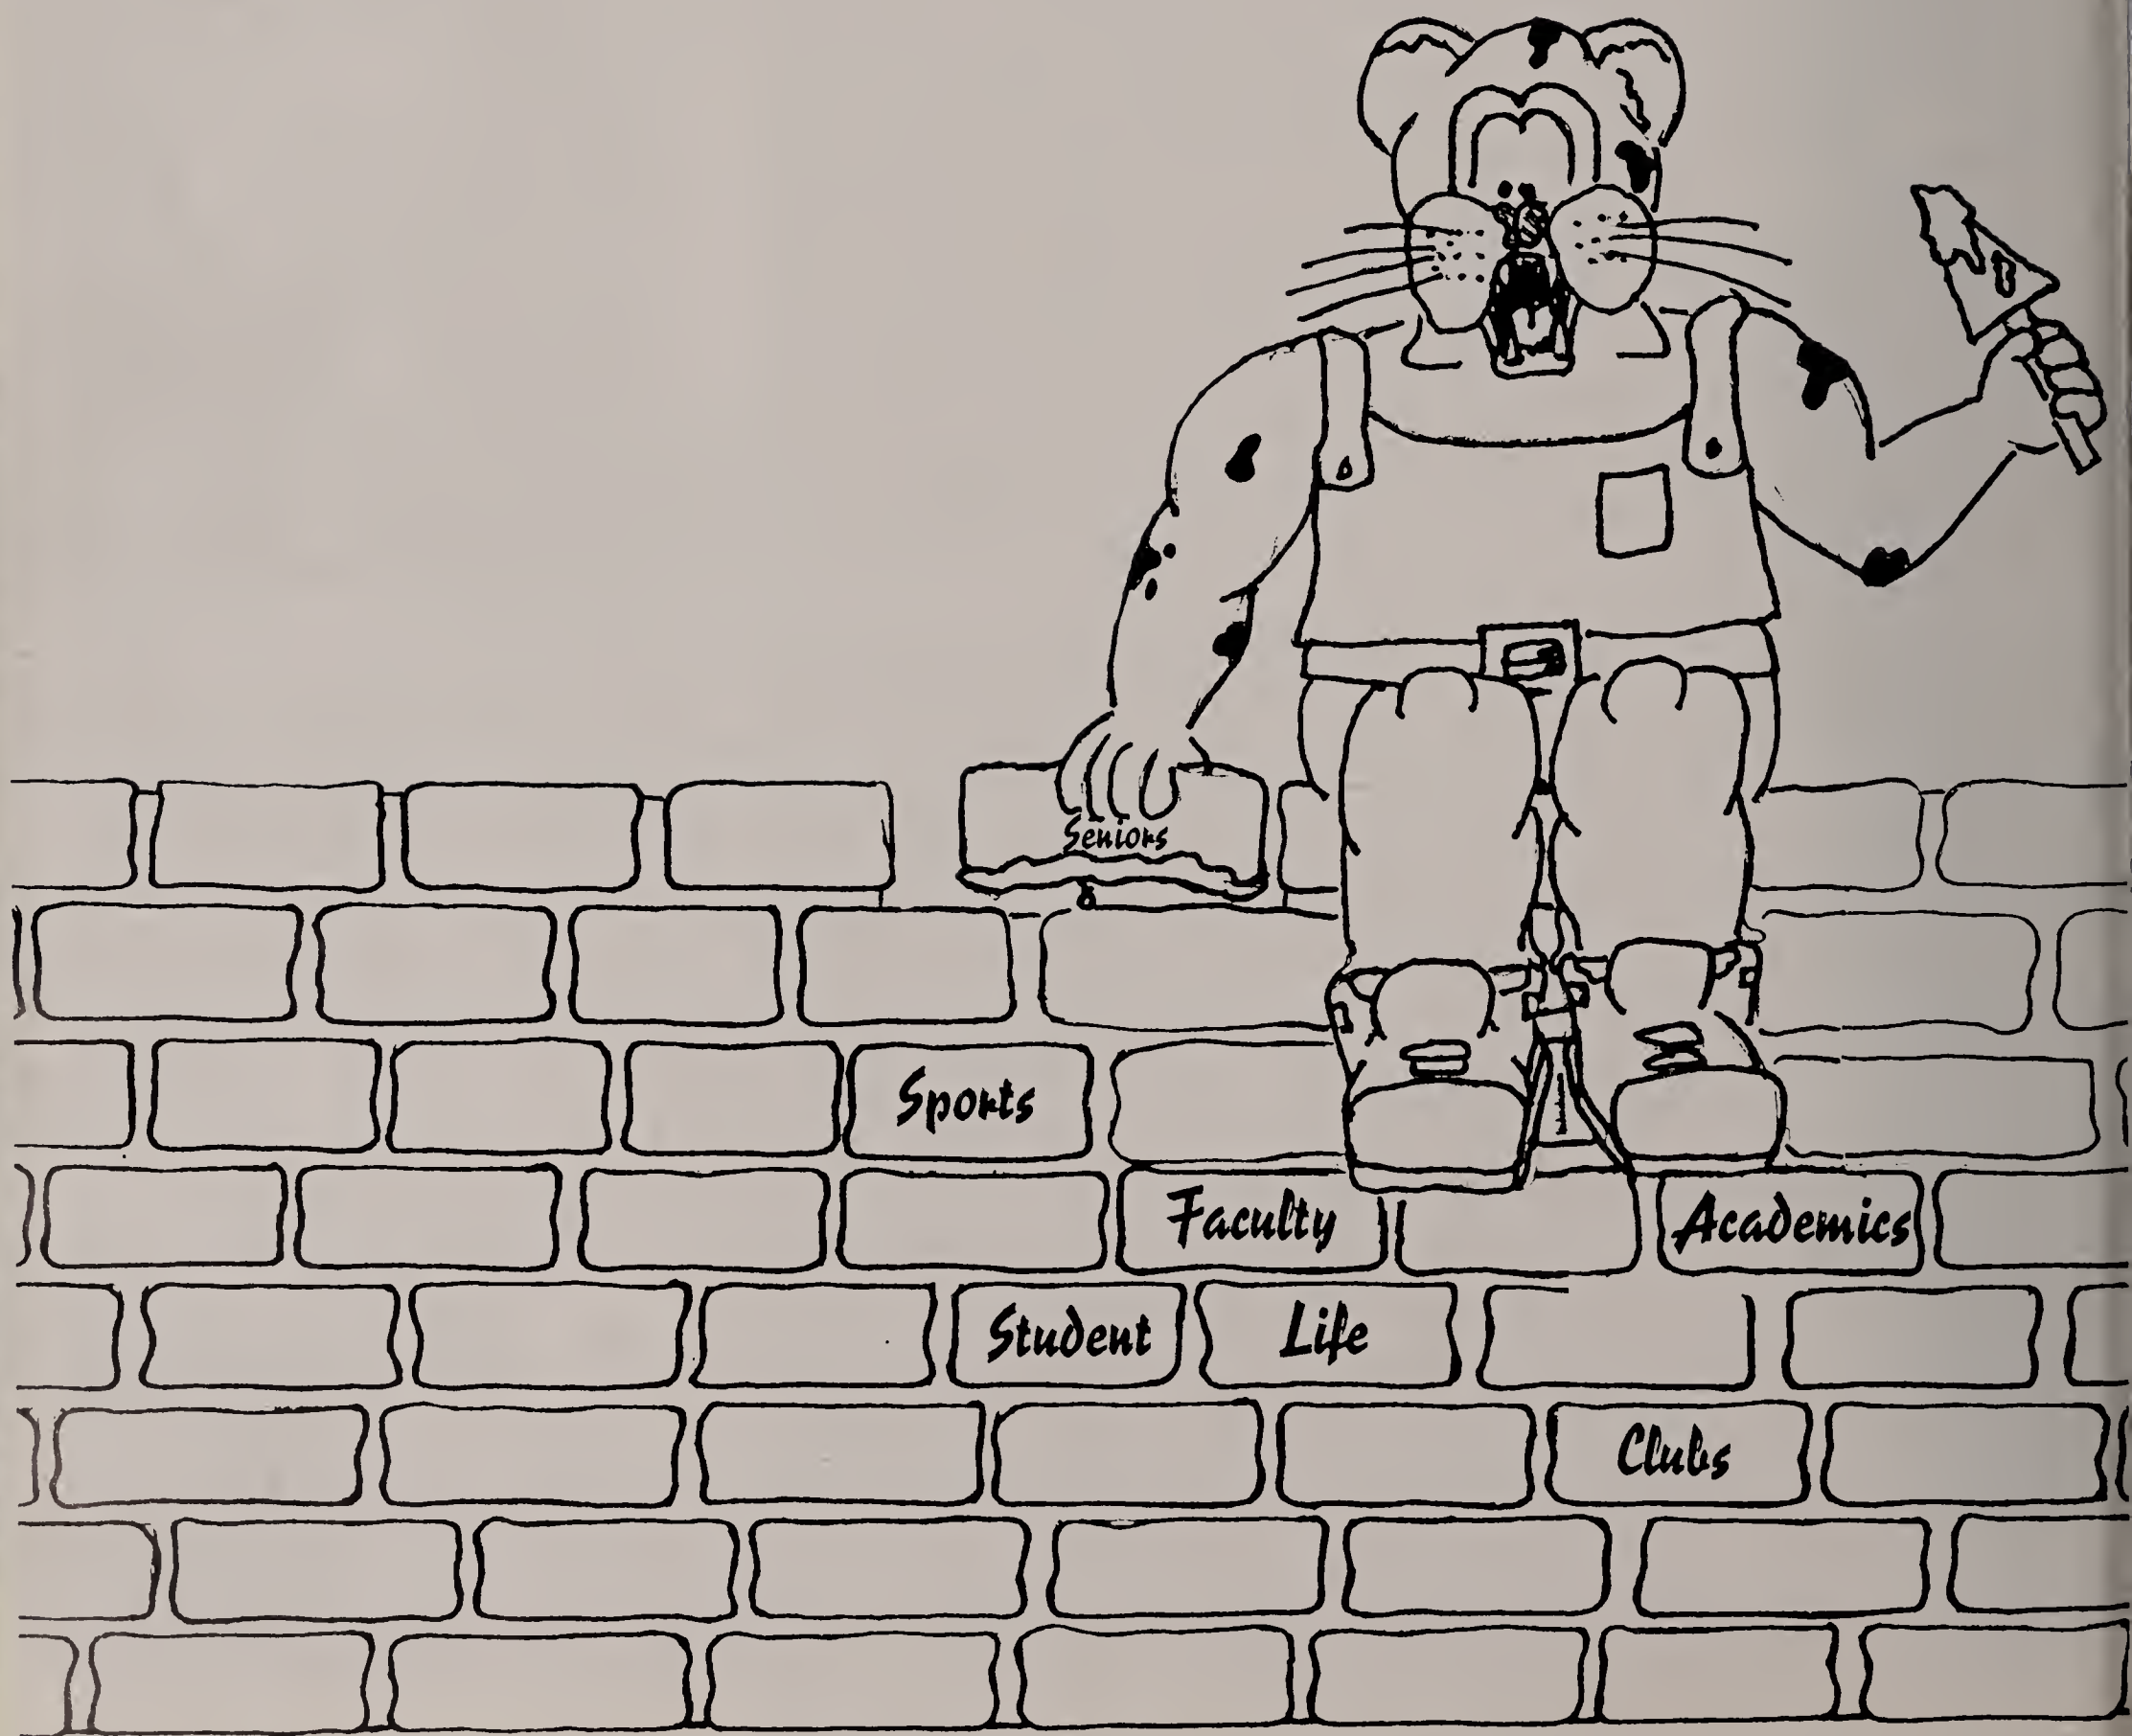 Seniors
Sports
Faculty
Academics
Student Life
Clubs